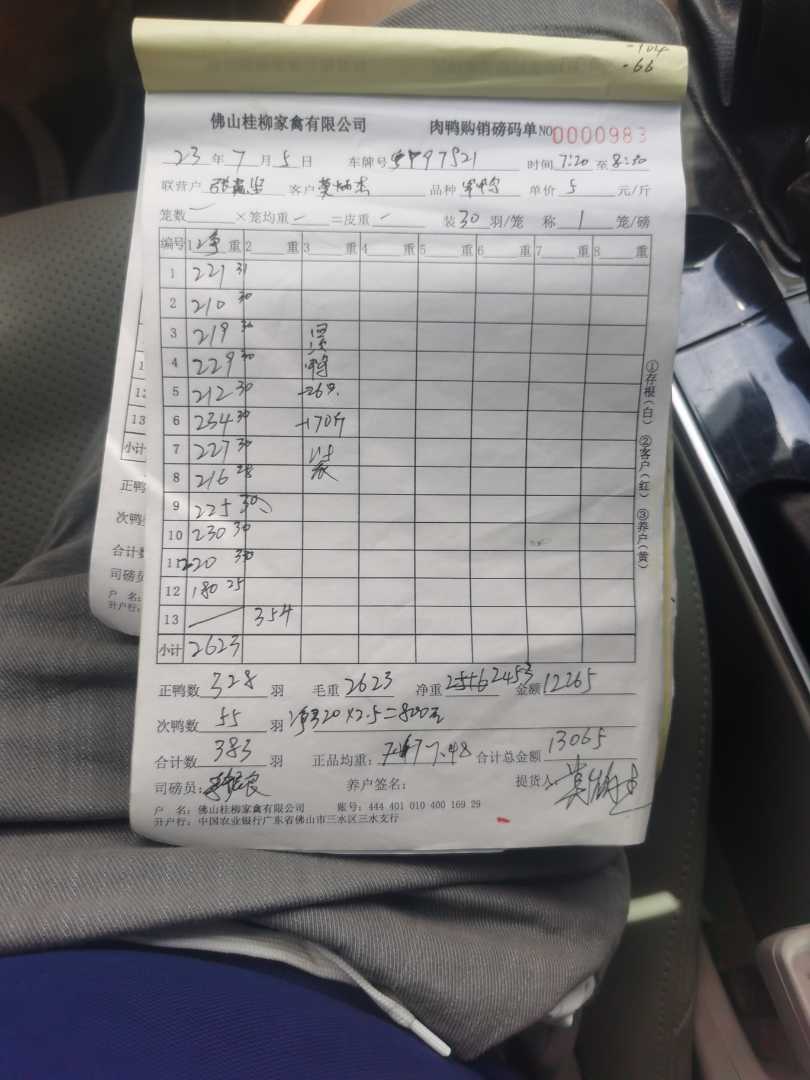 -104
-66
佛山桂柳家禽有限公司 肉鸭购销磅码单 NO 0000983
23 年 7 月 5 日 车牌号 97521 时间 7:20 至 8:30
联营户 客户 品种 单价 5 元/斤
笼数 — ×笼均重 — =皮重 — 装 30 羽/笼 称 1 笼/磅
编号 1 净 重 2 重 3 重 4 重 5 重 6 重 7 重 8 重
1 221 31
2 210 30
3 219 30
4 229 30 鸭
5 212 30
6 234 30 -170斤
7 227 30
8 216 28
9 225 30
10 230 30
11 220 30
12 180 25
13 354
小计 2623
正鸭数 328 羽 毛重 2623 净重 2453 金额 12265
次鸭数 55 羽 净320×2.5=800元
合计数 383 羽 正品均重: 7.48 合计总金额 13065
司磅员: 养户签名: 提货人:
户 名: 佛山桂柳家禽有限公司 账号: 444 401 010 400 169 29
开户行: 中国农业银行广东省佛山市三水区三水支行
①存根(白) ②客户(红) ③养户(黄)
12
13
小计
正鸭
次鸭
合计数
司磅员
户 名:
开户行: